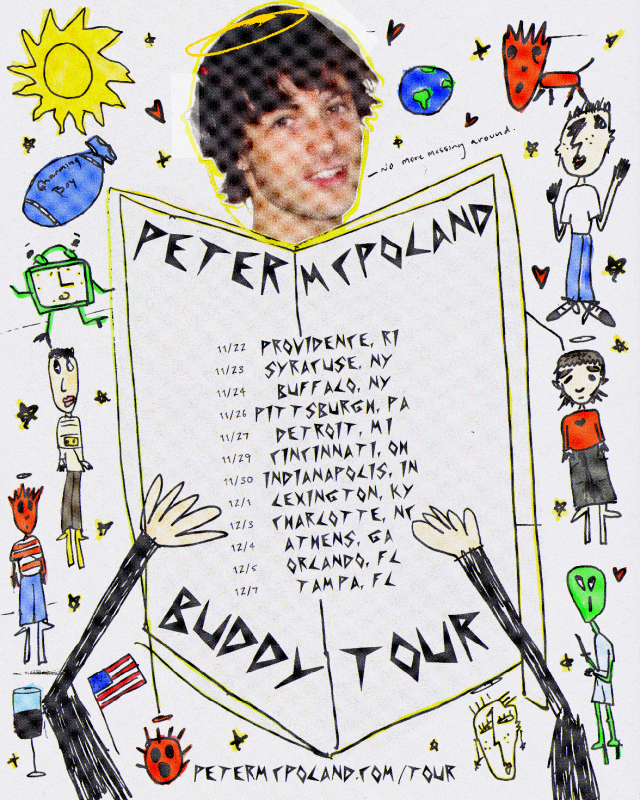 No more messing around.
Charming
Boy
PETER MCPOLAND
11/22 PROVIDENCE, RI
11/23 SYRACUSE, NY
11/24 BUFFALO, NY
11/26 PITTSBURGH, PA
11/27 DETROIT, MI
11/29 CINCINNATI, OH
11/30 INDIANAPOLIS, IN
12/1 LEXINGTON, KY
12/3 CHARLOTTE, NC
12/4 ATHENS, GA
12/5 ORLANDO, FL
12/7 TAMPA, FL
BUDDY TOUR
PETERMCPOLAND.COM/TOUR